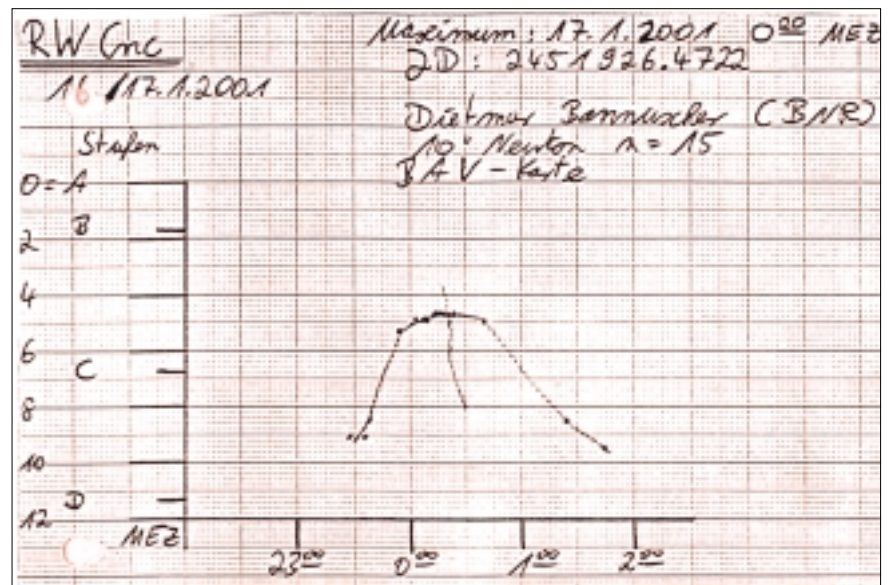 RW Cnc
16/17.1.2001
Maximum: 17.1.2001 0²⁰ MEZ
JD: 2451926.4722
Dietmar Bannuscher (BNR)
10" Newton n = 15
BAV-Karte
Stufen
0 = A
B
2
4
6
C
8
10
D
12
MEZ
23⁰⁰ 0⁰⁰ 1⁰⁰ 2⁰⁰